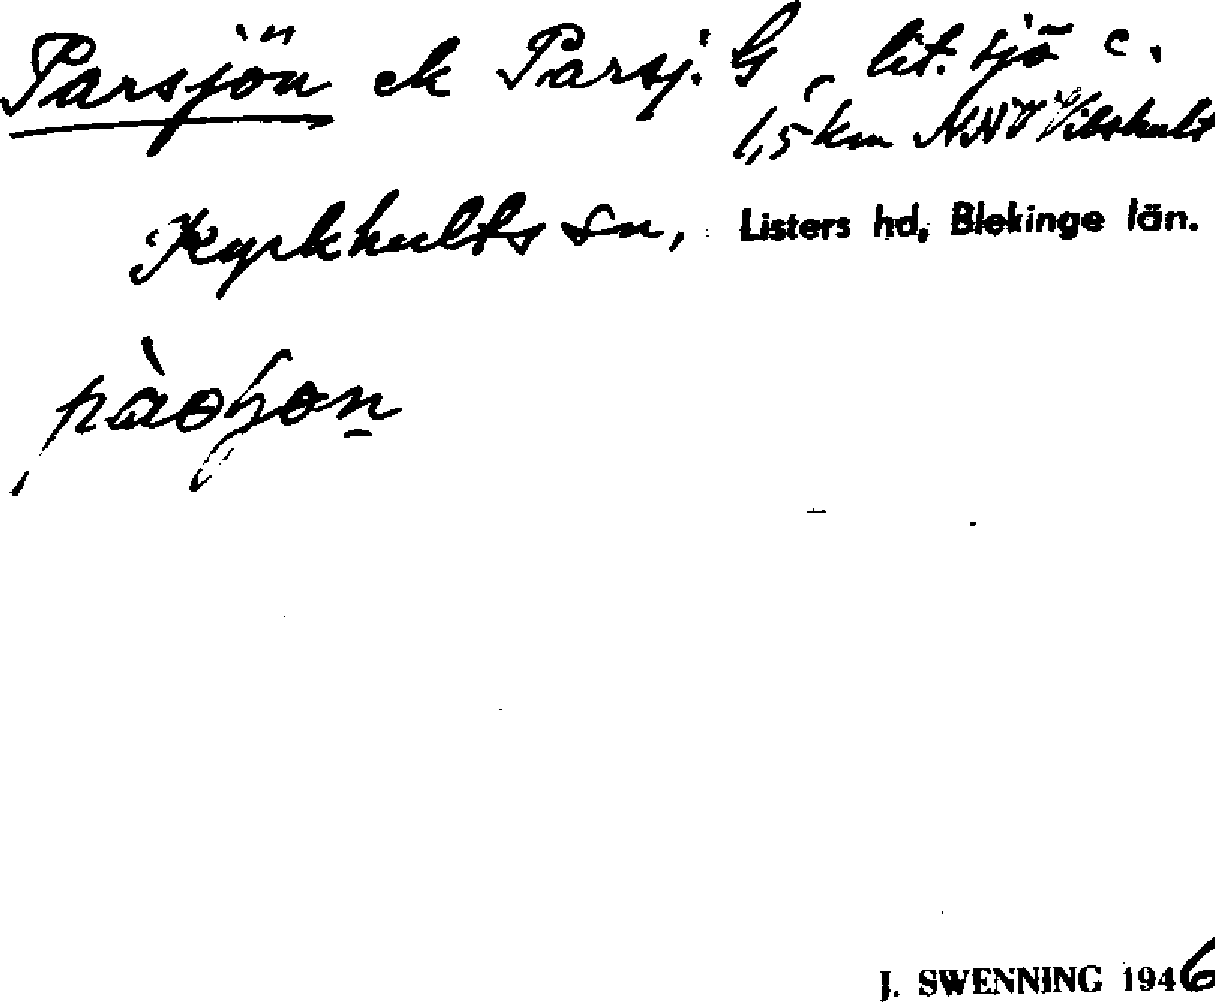 Parsjön ek Parsj. G, lit. sjö c.
1,5 km NNV Vilshult
Kyrkhults sn, Listers hd, Blekinge län.
J. SWENNING 1946